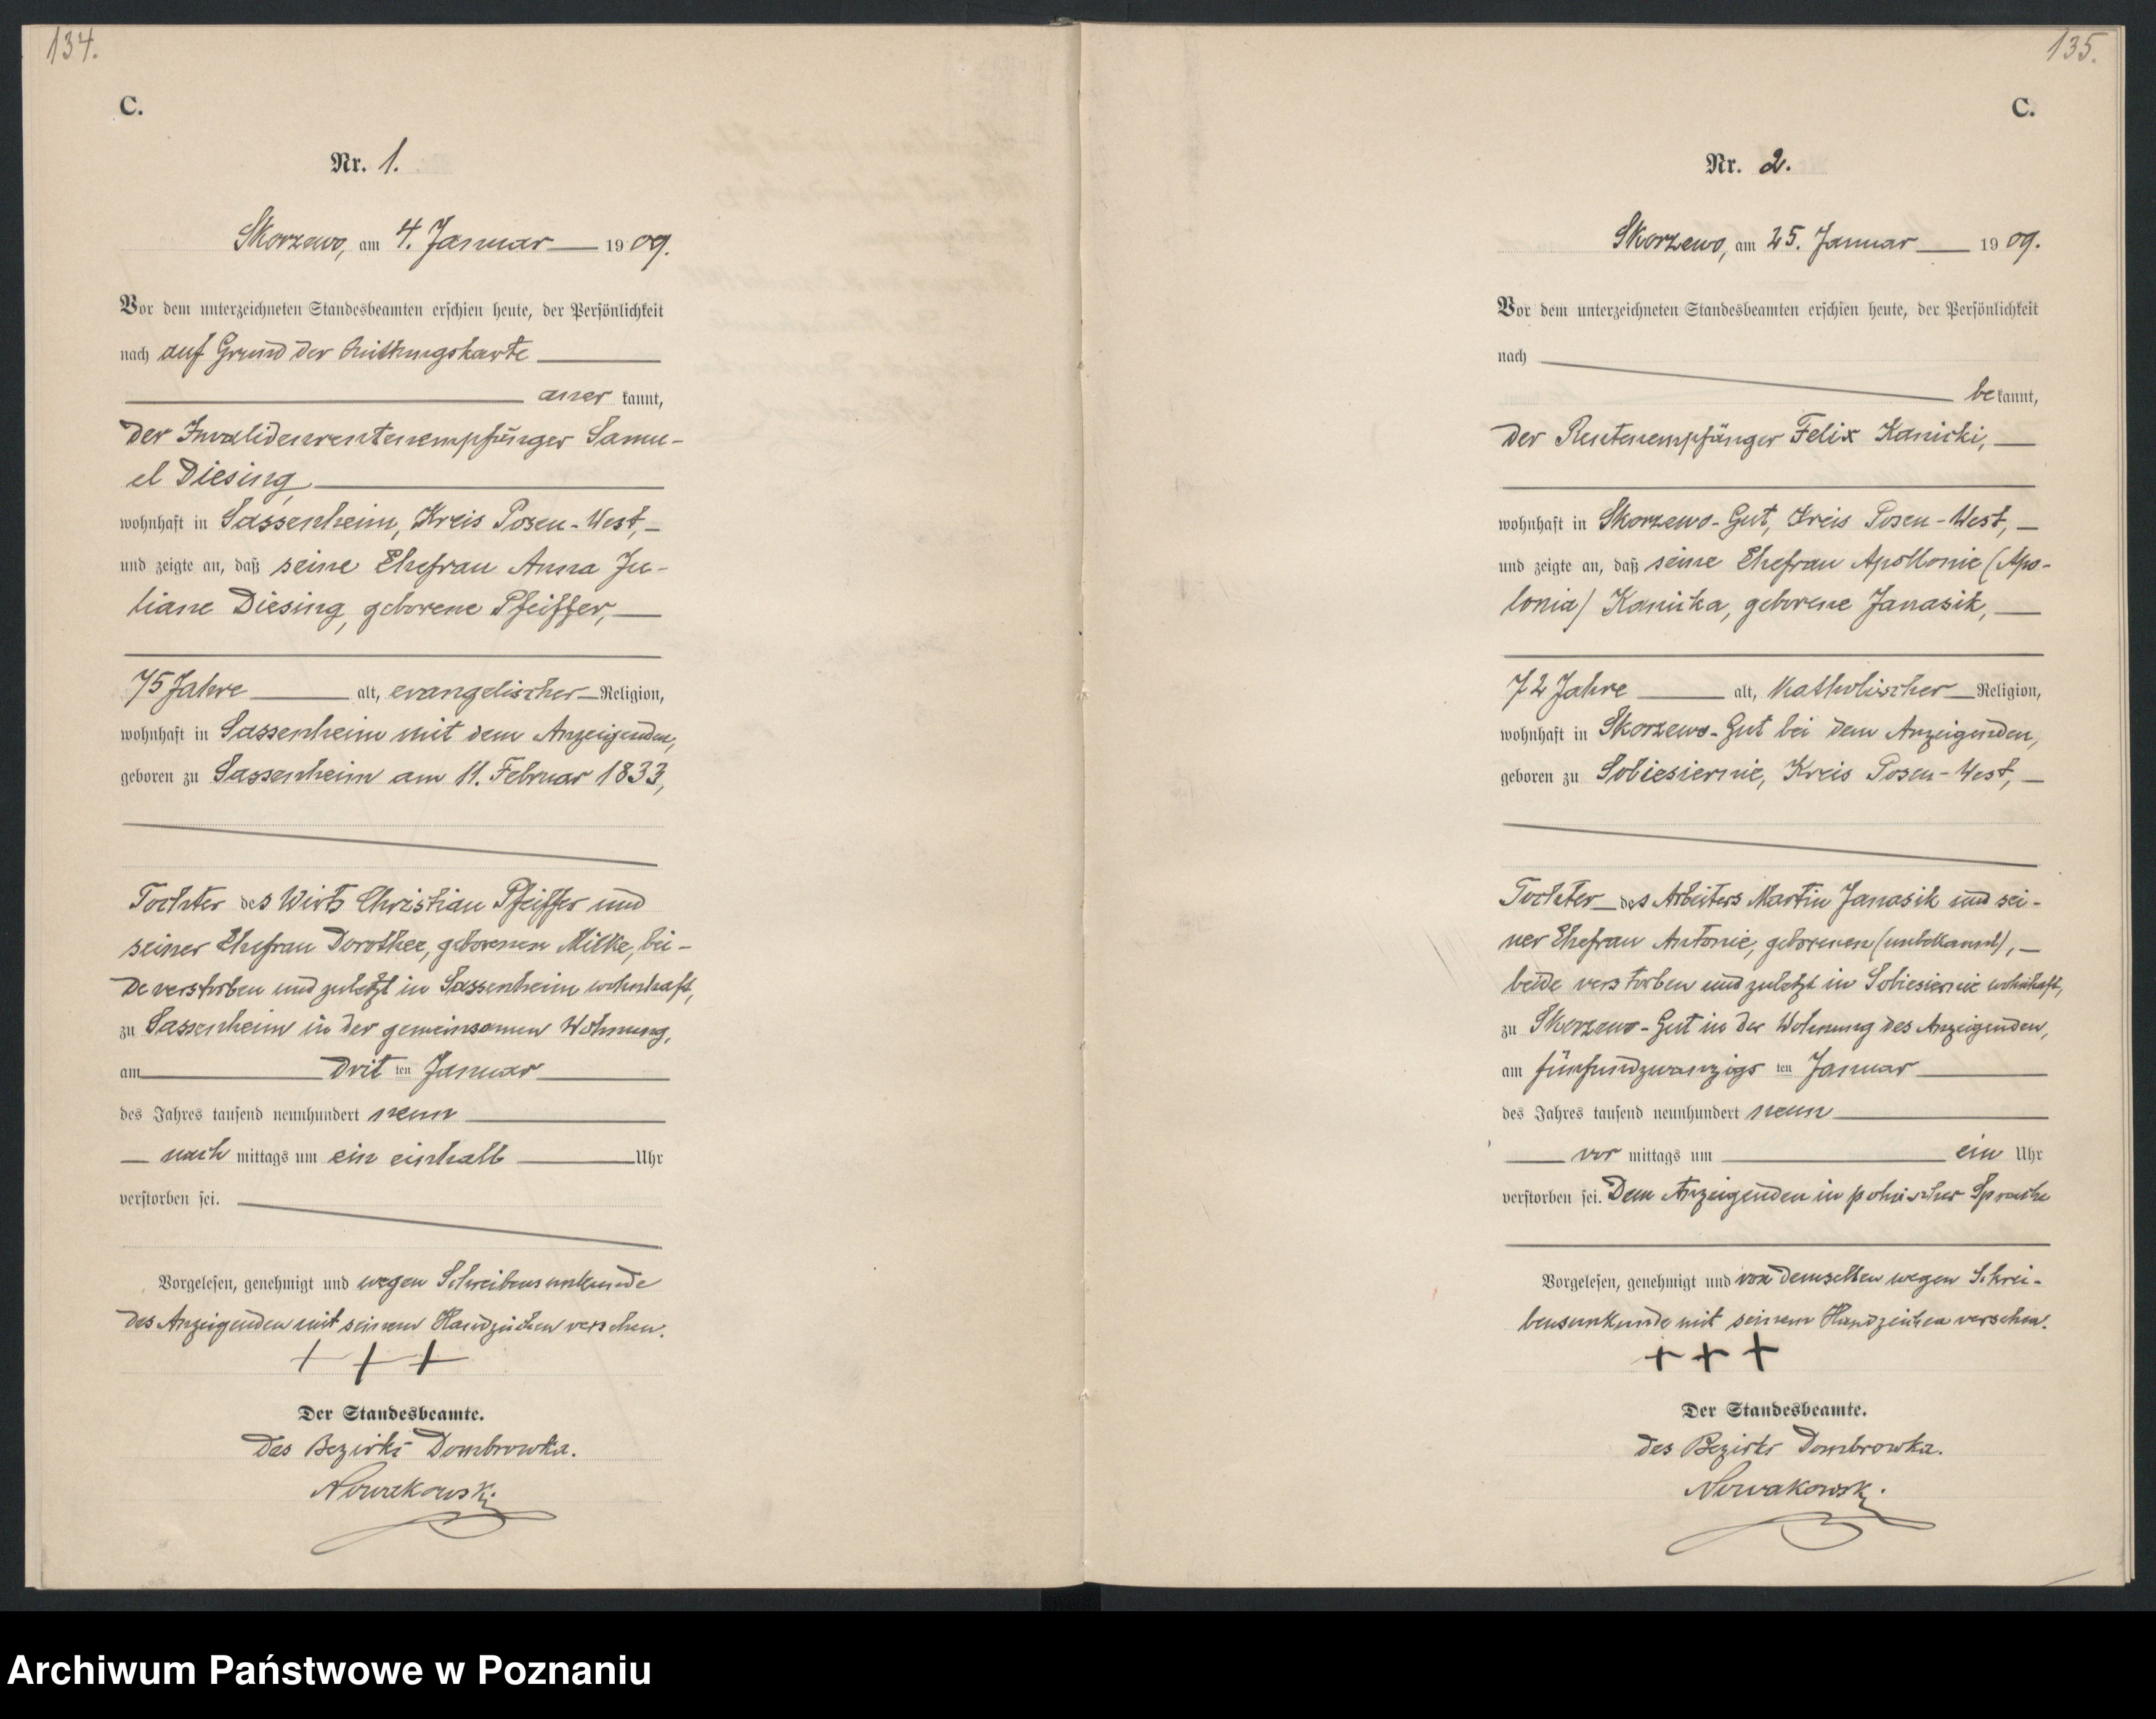 134.
C.
Nr. 1.
Skorzewo, am 4. Januar 1909.
Vor dem unterzeichneten Standesbeamten erschien heute, der Persönlichkeit
nach auf Grund der Quittungskarte
anerkannt,
der Invalidenrentenempfänger Samu-
el Diesing,
wohnhaft in Sassenheim, Kreis Posen-West,
und zeigte an, daß seine Ehefrau Anna Ju-
liane Diesing, geborene Pfeiffer,
75 Jahre alt, evangelischer Religion,
wohnhaft in Sassenheim mit dem Anzeigenden,
geboren zu Sassenheim am 11. Februar 1833,
Tochter des Wirts Christian Pfeiffer und
seiner Ehefrau Dorothee, geborenen Milke, bei-
de verstorben und zuletzt in Sassenheim wohnhaft,
zu Sassenheim in der gemeinsamen Wohnung,
am dritten Januar
des Jahres tausend neunhundert neun
nachmittags um ein einhalb Uhr
verstorben sei.
Vorgelesen, genehmigt und wegen Schreibensunkunde
des Anzeigenden mit seinem Handzeichen versehen.
+ + +
Der Standesbeamte.
des Bezirks Dombrowka.
Nowakowski
135.
C.
Nr. 2.
Skorzewo, am 25. Januar 1909.
Vor dem unterzeichneten Standesbeamten erschien heute, der Persönlichkeit
nach
bekannt,
der Rentenempfänger Felix Kanicki,
wohnhaft in Skorzewo-Gut, Kreis Posen-West,
und zeigte an, daß seine Ehefrau Apollonie (Apo-
lonia) Kanicka, geborene Janasik,
72 Jahre alt, katholischer Religion,
wohnhaft in Skorzewo-Gut bei dem Anzeigenden,
geboren zu Sobiesiernie, Kreis Posen-West,
Tochter des Arbeiters Martin Janasik und sei-
ner Ehefrau Antonie, geborenen (unbekannt),
beide verstorben und zuletzt in Sobiesiernie wohnhaft,
zu Skorzewo-Gut in der Wohnung des Anzeigenden,
am fünfundzwanzigsten Januar
des Jahres tausend neunhundert neun
vormittags um ein Uhr
verstorben sei. Dem Anzeigenden in polnischer Sprache
Vorgelesen, genehmigt und von demselben wegen Schrei-
bensunkunde mit seinem Handzeichen versehen.
+ + +
Der Standesbeamte.
des Bezirks Dombrowka.
Nowakowski
Archiwum Państwowe w Poznaniu